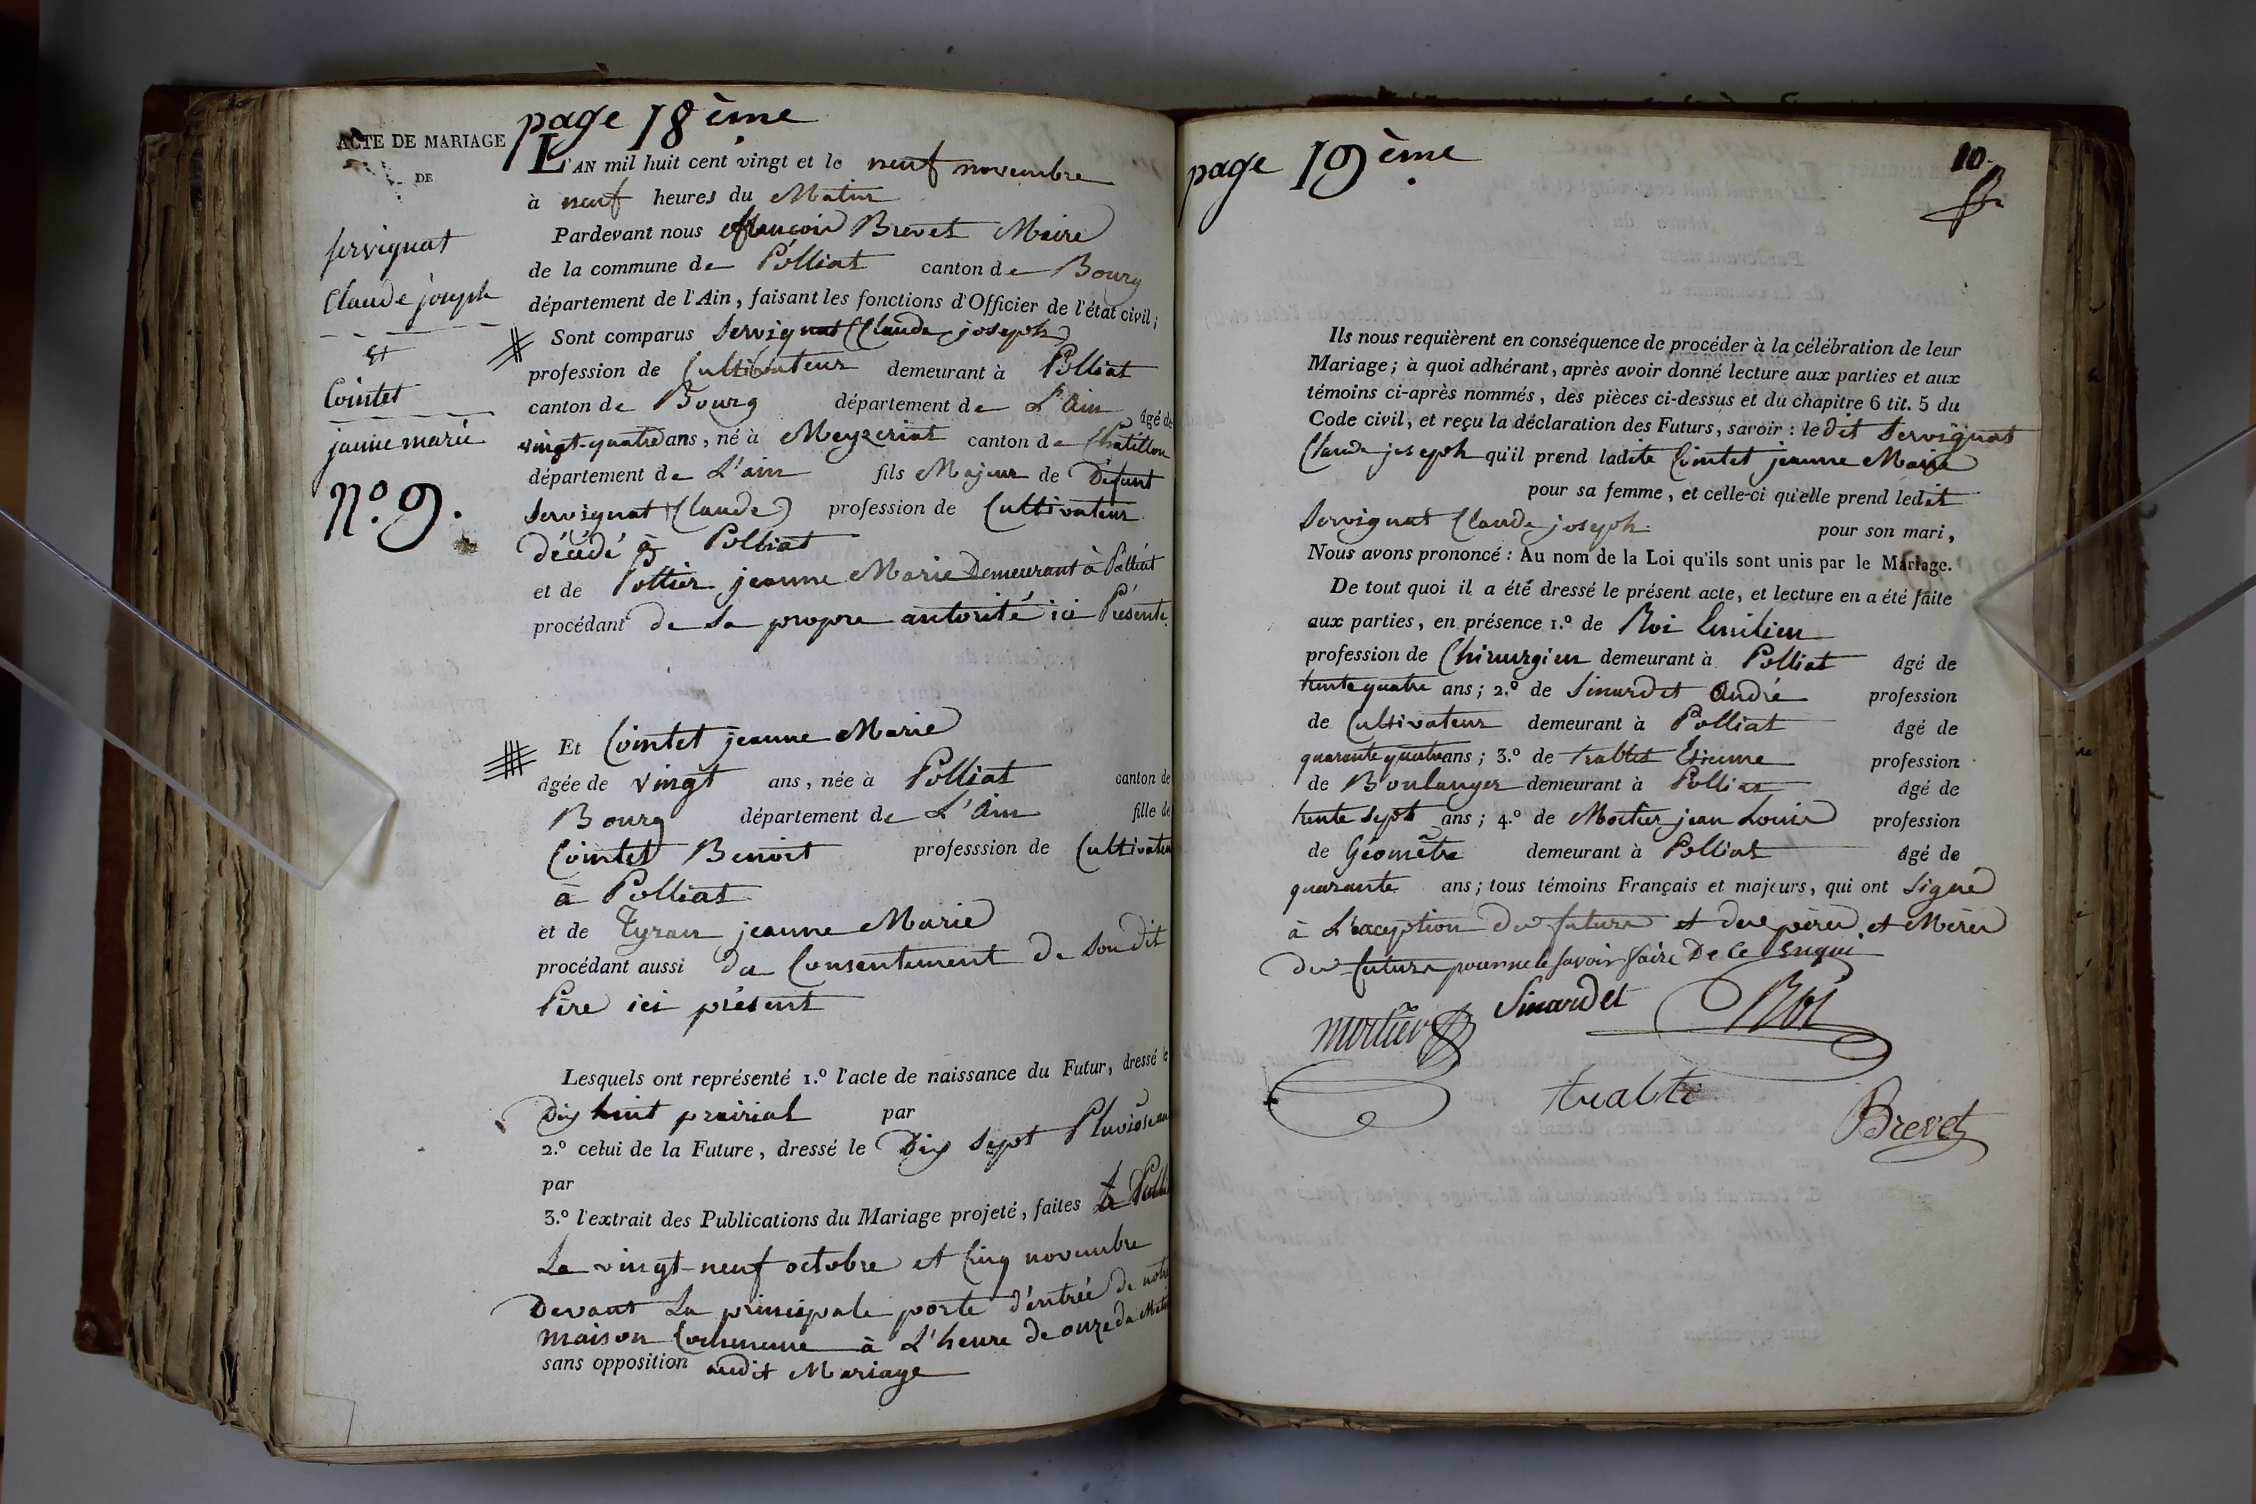 page 18ème
ACTE DE MARIAGE
DE
Servignat
Claude joseph
Et
Cointet
jeanne marie
N.º 9.
L'AN mil huit cent vingt et le neuf novembre
à neuf heures du Matin
Pardevant nous françois Brevet Maire
de la commune de Polliat canton de Bourg
département de l'Ain, faisant les fonctions d'Officier de l'état civil;
Sont comparus Servignat (Claude joseph)
profession de Cultivateur demeurant à Polliat
canton de Bourg département de L'Ain âgé de
vingt-quatre ans, né à Meyzeriat canton de Chatillon
département de L'ain fils Majeur de Défunt
Servignat (Claude) profession de Cultivateur
décédé à Polliat
et de Pottier jeanne Marie Demeurant à Polliat
procédant de Sa propre autorité ici Présente.
Et Cointet jeanne Marie
âgée de vingt ans, née à Polliat canton de
Bourg département de L'Ain fille de
Cointet Benoit professsion de Cultivateur
à Polliat
et de Tyran jeanne Marie
procédant aussi du Consentement de Son dit
Père ici présent
Lesquels ont représenté 1.º l'acte de naissance du Futur, dressé le
Dix huit prairial par
2.º celui de la Future, dressé le Dix Sept Pluviose an
par
3.º l'extrait des Publications du Mariage projeté, faites à Polli
Le vingt-neuf octobre et Cinq novembre
Devant La principale porte d'entrée de notre
maison Commune à L'heure de onze du Matin
sans opposition audit Mariage
page 19ème
10.
Ils nous requièrent en conséquence de procéder à la célébration de leur
Mariage; à quoi adhérant, après avoir donné lecture aux parties et aux
témoins ci-après nommés, des pièces ci-dessus et du chapitre 6 tit. 5 du
Code civil, et reçu la déclaration des Futurs, savoir : le dit Servignat
Claude joseph qu'il prend ladite Cointet jeanne Marie
pour sa femme, et celle-ci qu'elle prend ledit
Servignat Claude joseph pour son mari,
Nous avons prononcé : Au nom de la Loi qu'ils sont unis par le Mariage.
De tout quoi il a été dressé le présent acte, et lecture en a été faite
aux parties, en présence 1.º de Roi Emilien
profession de Chirurgien demeurant à Polliat âgé de
trente quatre ans; 2.º de Sinardet André profession
de Cultivateur demeurant à Polliat âgé de
quarante quatre ans; 3.º de trablet Etienne profession
de Boulanger demeurant à Polliat âgé de
trente Sept ans; 4.º de Mortier jean Louis profession
de Géomètre demeurant à Polliat âgé de
quarante ans; tous témoins Français et majeurs, qui ont Signé
à L'exception des futurs et des pères et Mères
des futurs pour ne le Savoir faire De Ce Enquis
mortier Sinardet Roi
Brevet